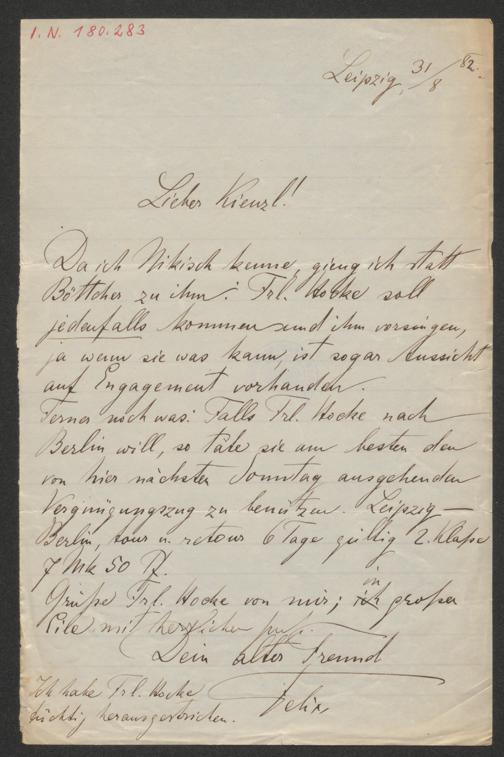 I. N. 180.283
Leipzig, 31/8 82.
Lieber Kienzl!
Da ich Nikisch kenne, gieng ich statt
Böttcher zu ihm! Frl. Hocke soll
jedenfalls kommen und ihm vorsingen,
ja wenn sie was kann, ist sogar Aussicht
auf Engagement vorhanden.
Ferner noch was: Falls Frl. Hocke nach
Berlin will, so täte sie am besten den
von hier nächsten Sonntag ausgehenden
Vergnügungszug zu benützen. Leipzig —
Berlin, tour u. retour 6 Tage gültig 2. Klaße
7 Mk 50 Pf.
Grüße Frl. Hocke von mir; in großer
Eile mit herzlichem
Dein alter Freund
Felix
Ich habe Frl. Hocke
tüchtig herausgestrichen.